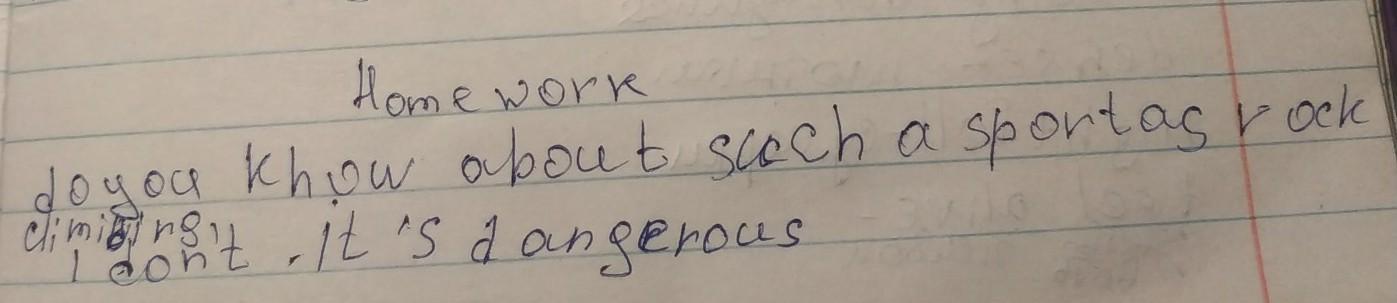 Homework
do you know about such a sport as rock
climbing,
I dont. It's dangerous